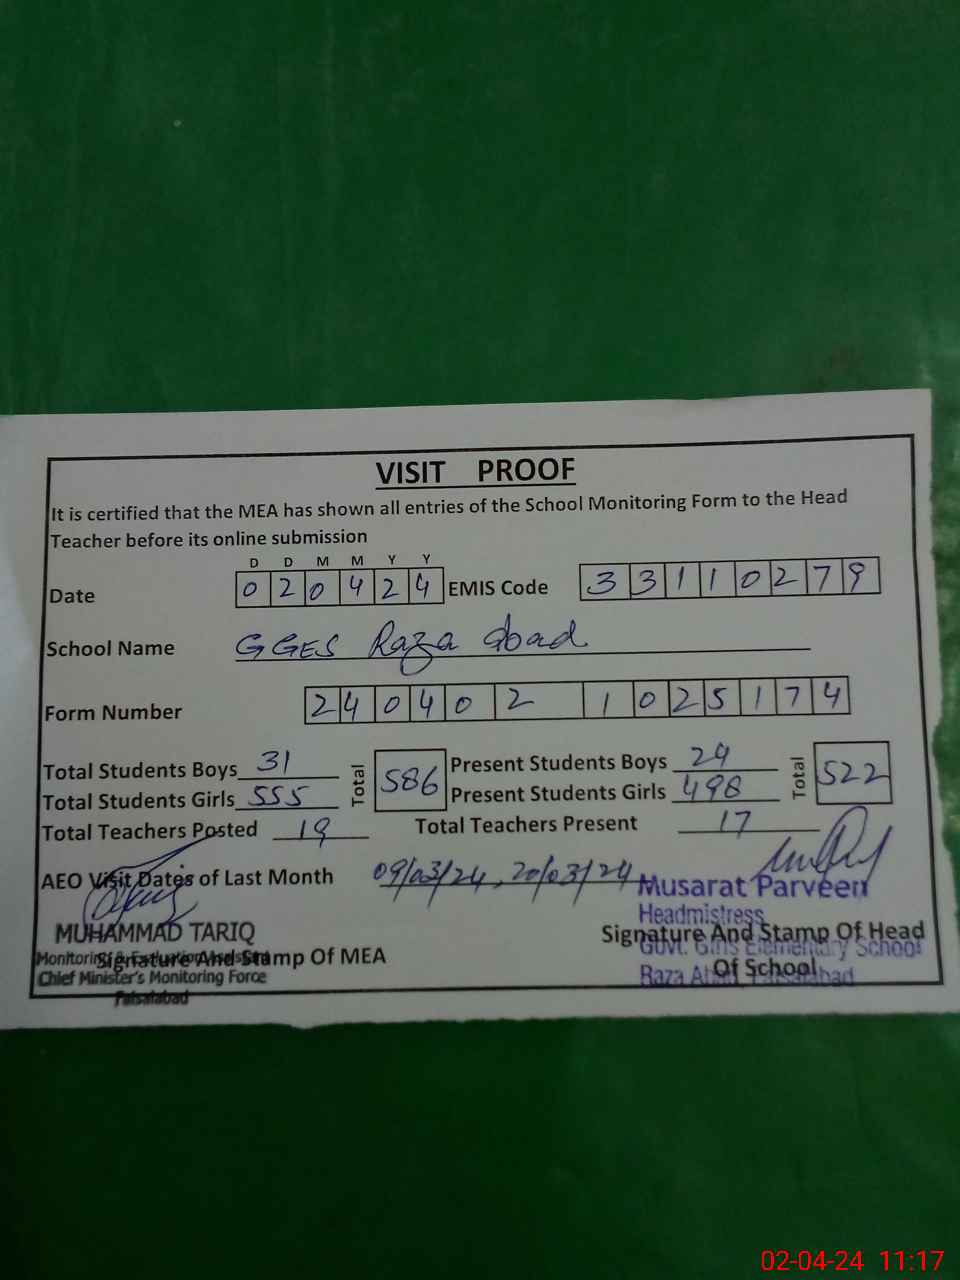 VISIT PROOF
It is certified that the MEA has shown all entries of the School Monitoring Form to the Head
Teacher before its online submission
D D M M Y Y
Date 0 2 0 4 2 4 EMIS Code 3 3 1 1 0 2 7 9
School Name GGES Raza abad
Form Number 2 4 0 4 0 2 1 0 2 5 1 7 4
Total Students Boys 31 Total 586 Present Students Boys 24 Total 522
Total Students Girls 555 Present Students Girls 498
Total Teachers Posted 19 Total Teachers Present 17
AEO Visit Dates of Last Month 09/03/24, 20/03/24
Musarat Parveen
Headmistress
MUHAMMAD TARIQ
Signature And Stamp Of Head
Govt. Girls Elementary School
Monitoring & Evaluation Assistant
Signature And Stamp Of MEA
Of School
Raza Abad Faisalabad
Chief Minister's Monitoring Force
Faisalabad
02-04-24 11:17